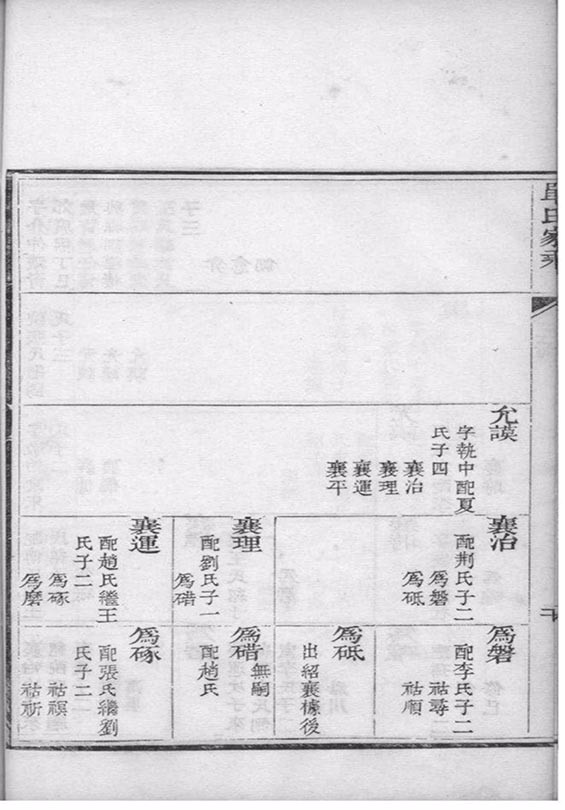 氏家
允謨
字執中配夏
氏子四
襄治
襄理
襄運
襄平
襄治
配荆氏子二
爲磐
爲砥
襄理
配劉氏子一
爲碏
襄運
配趙氏繼王
氏子二
爲琢
爲磨
爲磐
配李氏子二
祜
祜順
爲砥
出紹襄後
爲碏
無嗣
配趙氏
爲琢
配張氏繼劉
氏子二
祜
祜祈